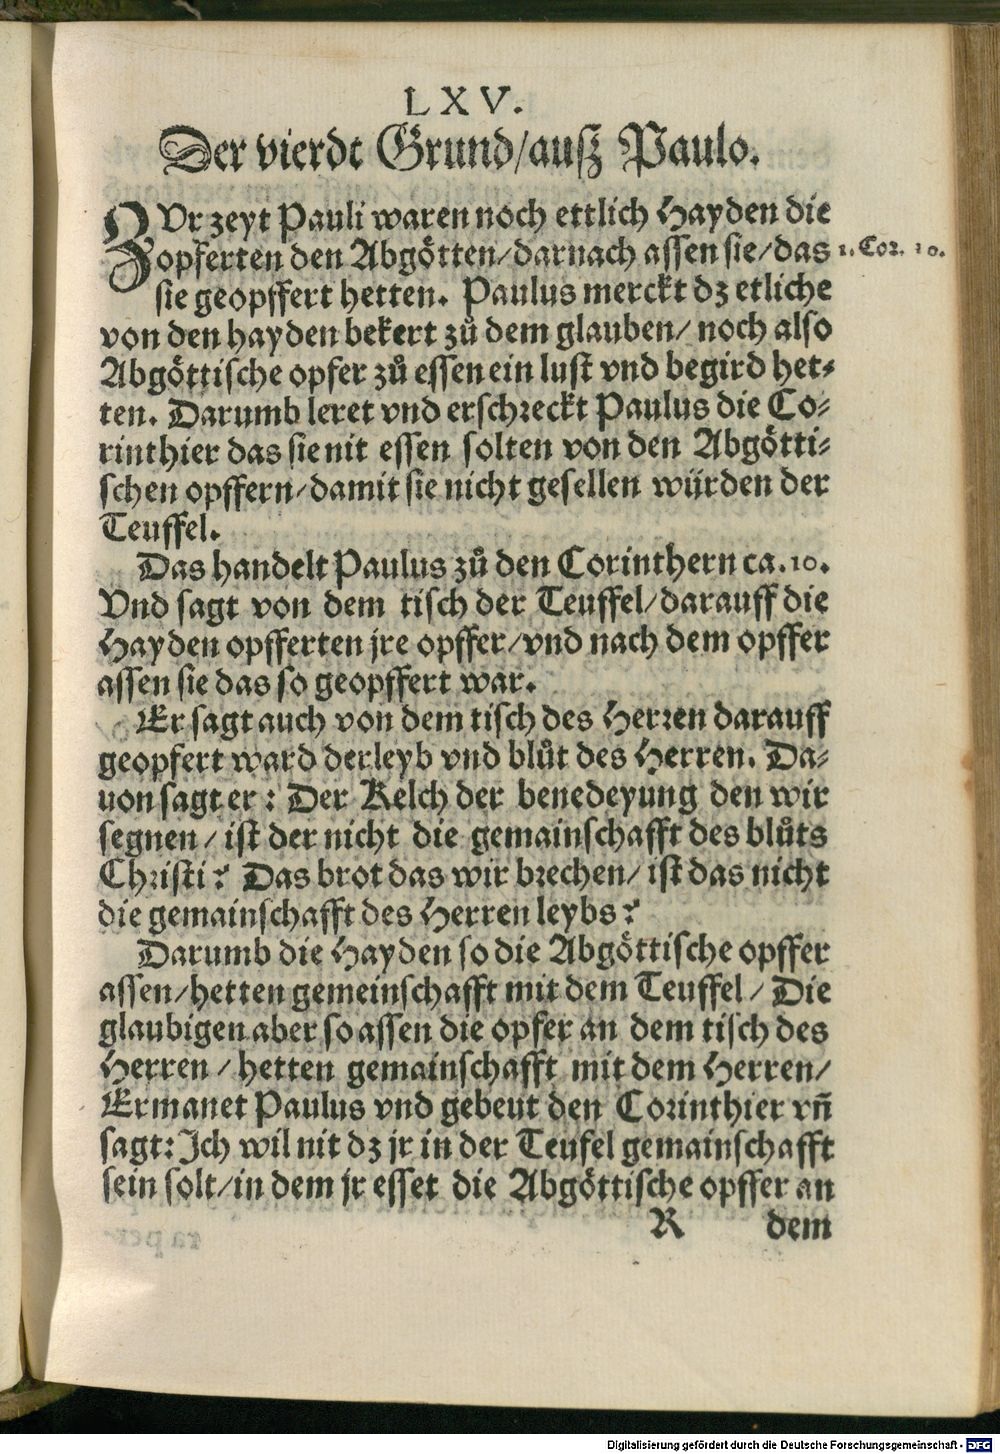 LXV.
Der vierdt Grund/außz Paulo.
ZVr zeyt Pauli waren noch ettlich Hayden die
opferten den Abgötten/darnach assen sie/das 1. Cor. 10.
sie geopffert hetten. Paulus merckt dz etliche
von den hayden bekert zů dem glauben/ noch also
Abgöttische opfer zů essen ein lust vnd begird het⸗
ten. Darumb leret vnd erschreckt Paulus die Co⸗
rinthier das sie nit essen solten von den Abgötti⸗
schen opffern/damit sie nicht gesellen würden der
Teuffel.
Das handelt Paulus zů den Corinthern ca.10.
Vnd sagt von dem tisch der Teuffel/darauff die
Hayden opfferten jre opffer/vnd nach dem opffer
assen sie das so geopffert war.
Er sagt auch von dem tisch des Herren darauff
geopfert ward der leyb vnd blůt des Herren. Da⸗
uon sagt er: Der Kelch der benedeyung den wir
segnen/ ist der nicht die gemainschafft des blůts
Christi? Das brot das wir brechen/ ist das nicht
die gemainschafft des Herren leybs?
Darumb die Hayden so die Abgöttische opffer
assen/hetten gemeinschafft mit dem Teuffel/ Die
glaubigen aber so assen die opfer an dem tisch des
Herren/ hetten gemainschafft mit dem Herren/
Ermanet Paulus vnd gebeut den Corinthier vñ
sagt: Ich wil nit dz jr in der Teufel gemainschafft
sein solt/in dem jr esset die Abgöttische opffer an
R dem
Digitalisierung gefördert durch die Deutsche Forschungsgemeinschaft - DFG